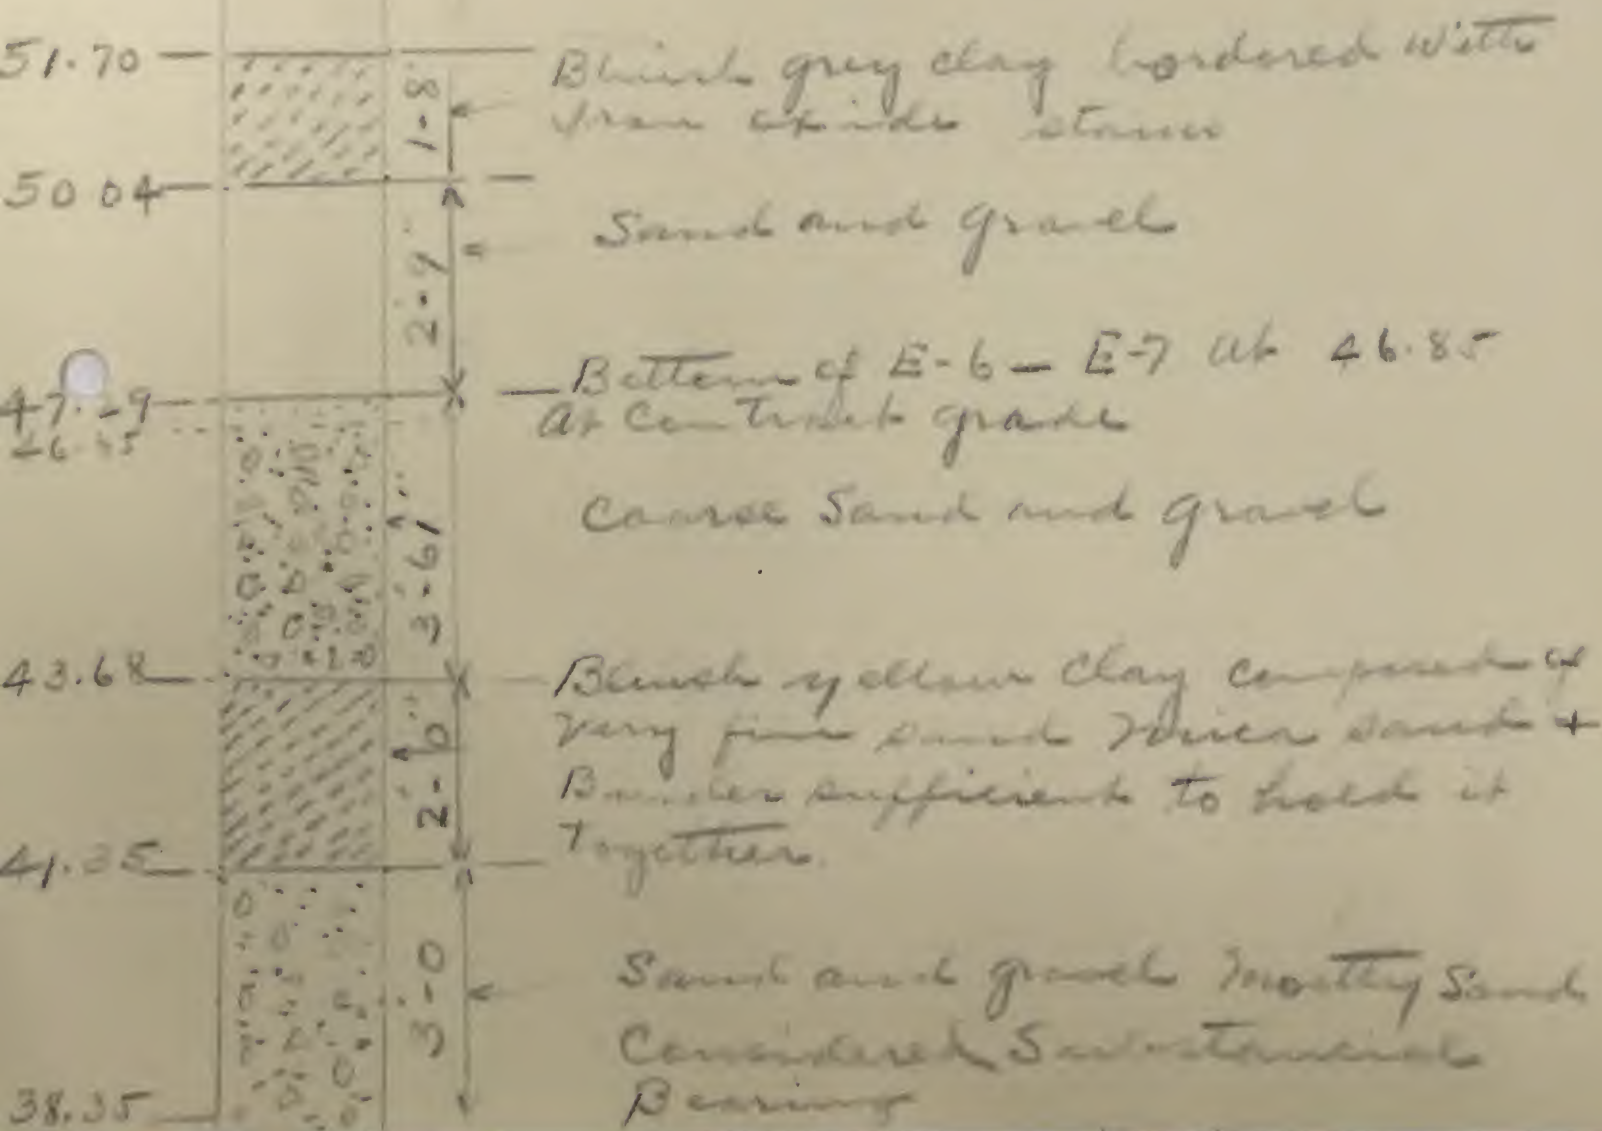 51.70
1-8
Bluish grey clay bordered with
iron oxide stains
50 04
2'-9"
Sand and gravel
Bottom of E-6 — E-7 at 46.85
47. 9
At Contract grade
Coarse Sand and gravel
3'-6
43.68
Bluish yellow Clay composed of
Very fine sand Mica sand +
2'-
Binder sufficient to hold it
Together.
41.35
3'-0
Sand and gravel Mostly Sand
Considered Substancial
Bearing
38.35